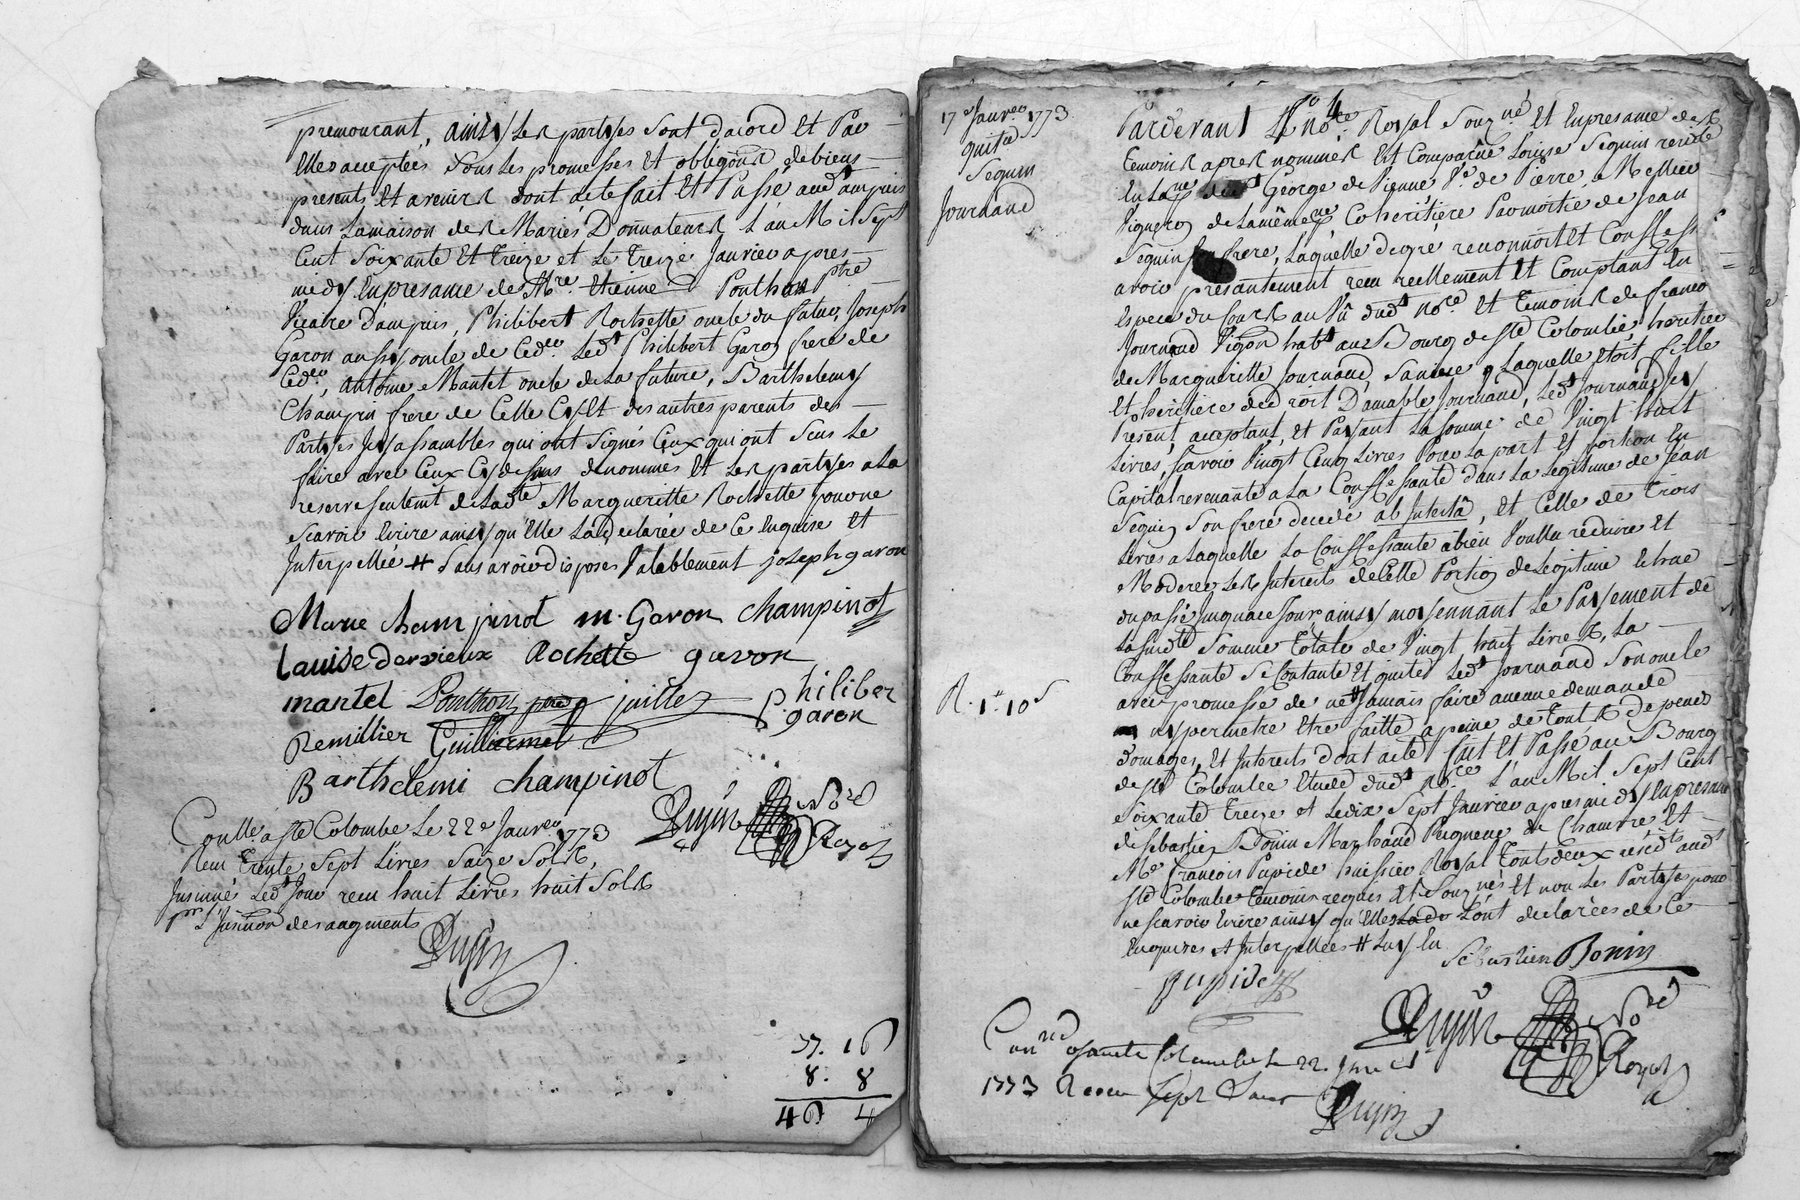 premourant, ainsy les partyes sont dacord Et Par
Elles acceptées sous les promesses Et obligons de biens
presents et avenirs dont acte fait Et Passé aud. ampuis
dans la maison des Mariés Donnateurs L'an Mil Sept
Cent Soixante Et Treize et Le Treize Janvier apres
midy En presance de Mre. Etienne Ponthon Ptre
Vicaire Dampuis, Philibert Rochette oncle du futur, Joseph
Garon aussy oncle de Cedr., Led. Philibert Garon frere de
Cedr., Antoine Mantel oncle de La future, Barthelemy
Champin frere de Celle Cy Et des autres parents des
Partyes Jcy assamblés qui ont Signés Ceux qui ont Sceu Le
faire avec Ceux Cy dessus denommés Et Les partyes a La
reserve seulement de Lad.te Margueritte Rochette pour ne
Scavoir Ecrire ainsy qu'Elle La déclarée de Ce Enquise Et
Interpellée # Sans avoir disposes Valablement joseph garon
Marie champinot m. Garon champinot
Louise dervieux Rochette garon
mantel Ponthon ptre juillet philiber
garon
Remillier Guilliermet
Barthelemi champinot
Dujin Nore
Royal
Conlle. a Ste Colombe Le 22e Janver. 1773
Recu Trente Sept Livres Saize Sols,
Insinué Led. Jour recu huit Livres huit Sols
pr L'Insinon des augments
Dujin
37. 16
8. 8
46 4
17e Janver 1773
quitce
Seguin
Journaud
R. 1 tt 10 s
Pardevant Le nore. Royal Souzné Et En presance des
temoins apres nommés Est Comparue Louise Seguin
George de Vienne Ve. de Pierre Mellier
Vigneron de La même Coheritiere Par mortié de Jean
Seguin son frere, Laquelle de gré reconnoit et Confesse
avoir presantement recu reellement Et Comptant En
Especes du Cours au Vû dud. Nore. Et Temoins de
Journaud Vigon habt. au Bourg de Ste Colombe heritier
de Margueritte Journaud, Laquelle Etoit fille
Et heritiere de droit Damable Journaud, Led. Journaud Jcy
Present acceptant, Et Payant La Somme de Vingt huit
Livres, Scavoir Vingt Cinq Livres Pour La part Et portion En
Capital revenante a La Confessante dans La Legitime de Jean
Seguin Son frere decedé ab Intesta, Et Celle de Trois
Livres a Laquelle La Confessante a bien Voullu réduire Et
Moderer Les Interets de Celle Portion de Legitime Echue
du passé jusqua ce Jour ainsy moyennant Le Payement de
La Susdte Somme Totale de Vingt huit Livres, La
Confessante Se Contante Et quite Led. Journaud Son oncle
avec promesse de ne Jamais faire aucune demande
ny permetre Etre faitte a peine de Touts Depens
Domages, Et Interets dont acte fait Et Passé au Bourg
de Ste Colombe Etude dud. Nore. L'an Mil Sept Cent
Soixante Treize et Le dix Sept Janvier apres midy En presance
de Sebastien Bonin Marchand Peigneur de Chanvre Et
Me. francois Pupide huissier Royal Touts deux residts. aud.
Ste Colombe temoins requis Et Souznés Et non Les Partyes pour
ne Scavoir Ecrire ainsy qu'Elles L'ont declarées de Ce
Enquises Et Interpellées #
Sebastien Bonin
pupide
Dujin Nore
Royal
Connlé a Sainte Colombe Le 22. Janvier
1773 Recu Sept Sous
Dujin